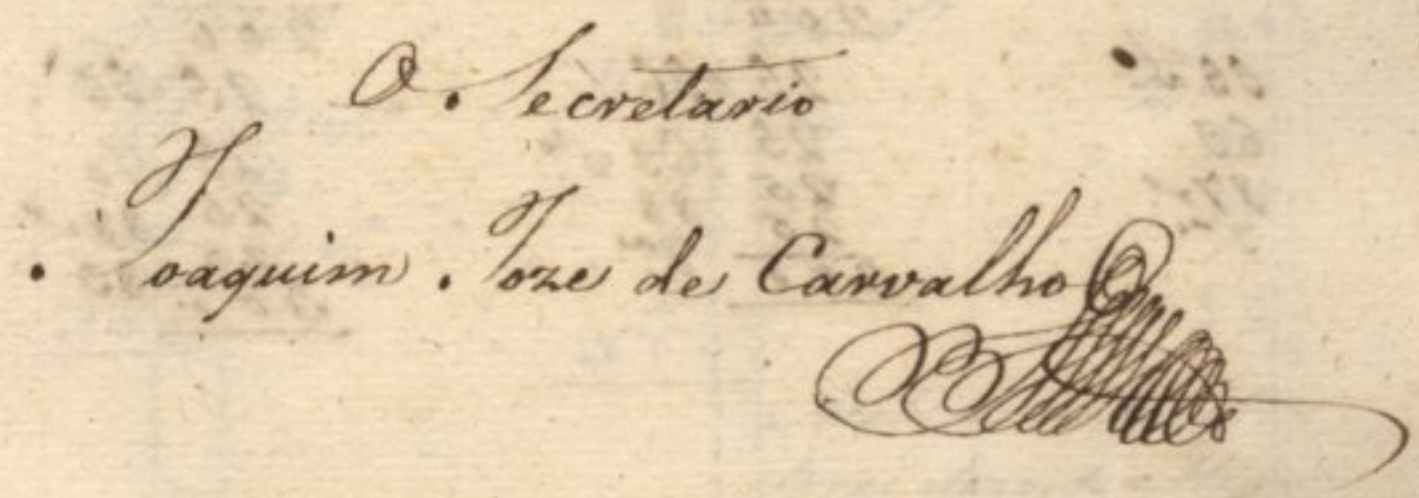 O Secretario
Joaquim Joze de Carvalho